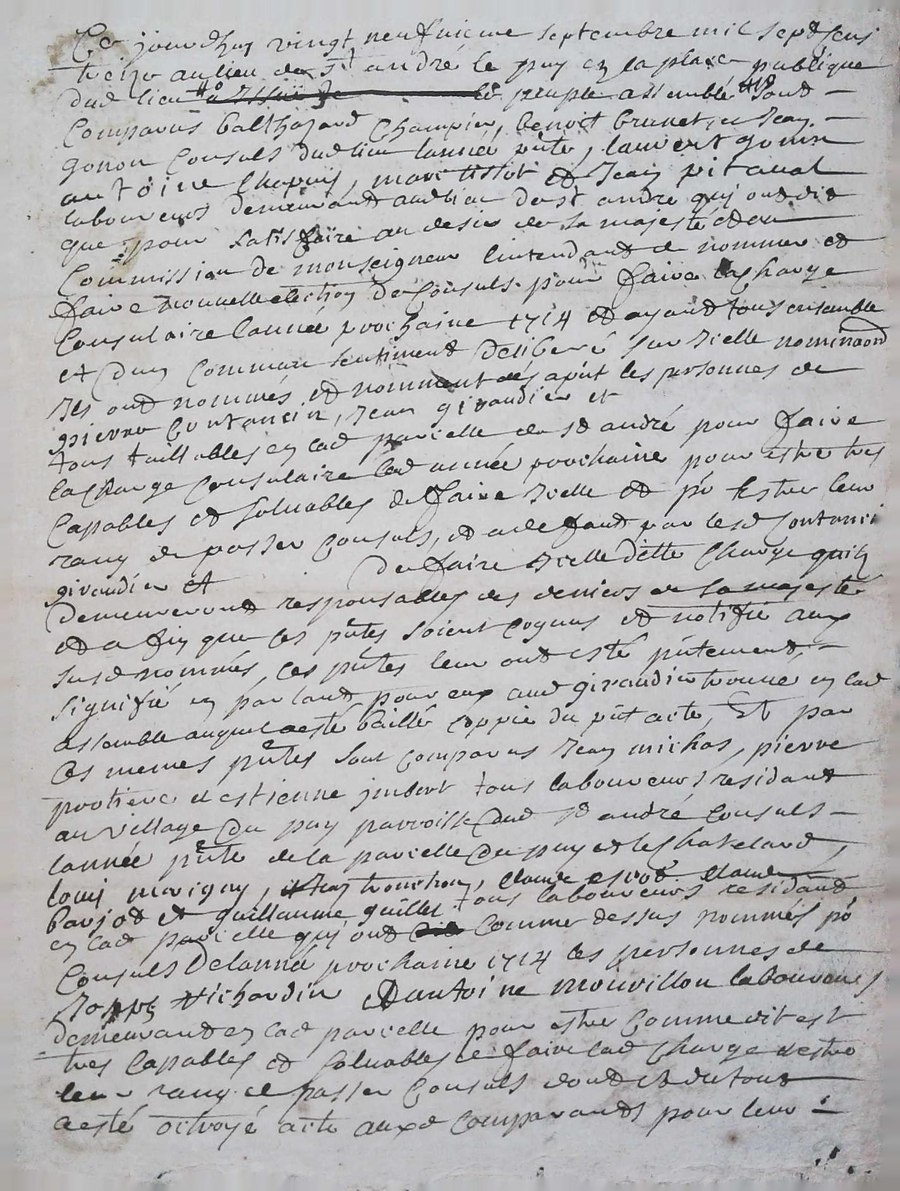 Ce jourdhuy vingt neufuieme septembre mil sept cens
treize au lieu de St andré le puy en la place publique
dud lieu le peuple assemblé sont
Comparus balthazard Champier, benoit brunet, et Jean
gonon Consuls dud lieu lannée pnte, laurent gonin
antoine Chapuis, marc tissot et Jean pitaval
laboureurs demeurant aud lieu de st andre quj ont dit
que pour satisfaire au desir de sa majesté et au
Commission de monseigneur lintendant de nommer et
faire nouvelle election de Consuls pour faire la Charge
Consulaire lannée prochaine 1714 et ayant tous ensemble
et dun Commun sentiment deliberé sur Icelle nominaon
Ils ont nommés et nomment des apnt les personnes de
pierre Contancin, Jean giraudier et
tous taillables en lad parcelle de st andré pour faire
la Charge Consulaire lad année prochaine pour estre tres
Capables et soluables de faire Icelle et pr Ester leur
rang de passer Consuls, et a deffaut par lesd Contanci
giraudier et de faire Icelle ditte Charge quilz
demeureront responsables des deniers de sa majesté
et afin que ces pntes soient Cognus et notifié aux
susd nommés, ces pntes leur ont esté pntement
signifié en parlant pour eux aud giraudier trouvé en lad
assemblé auquel a esté baillé Coppie du pnt acte, Et par
Ces memes pntes sont Comparus Jean michas, pierre
protiere et estienne jmbert tous laboureurs residant
au village du puy parroisse dud st andré Consuls
lannée pnte de la parcelle du puy et le Chatelard,
louis marigny, Jean trouchon, claude claude
barjot et guillaume guillet tous laboureurs residant
en lad parcelle quj ont Comme dessus nommés pr
Consuls de lanné prochaine 1714 les personnes de
Richardin Et antoine mourillon laboureurs
demeurant en lad parcelle pour estre Comme dit est
tres Capables et soluables de faire lad Charge estre
leur rang de passer Consuls dont et du tout
a esté octroyé acte auxd Comparants pour leur